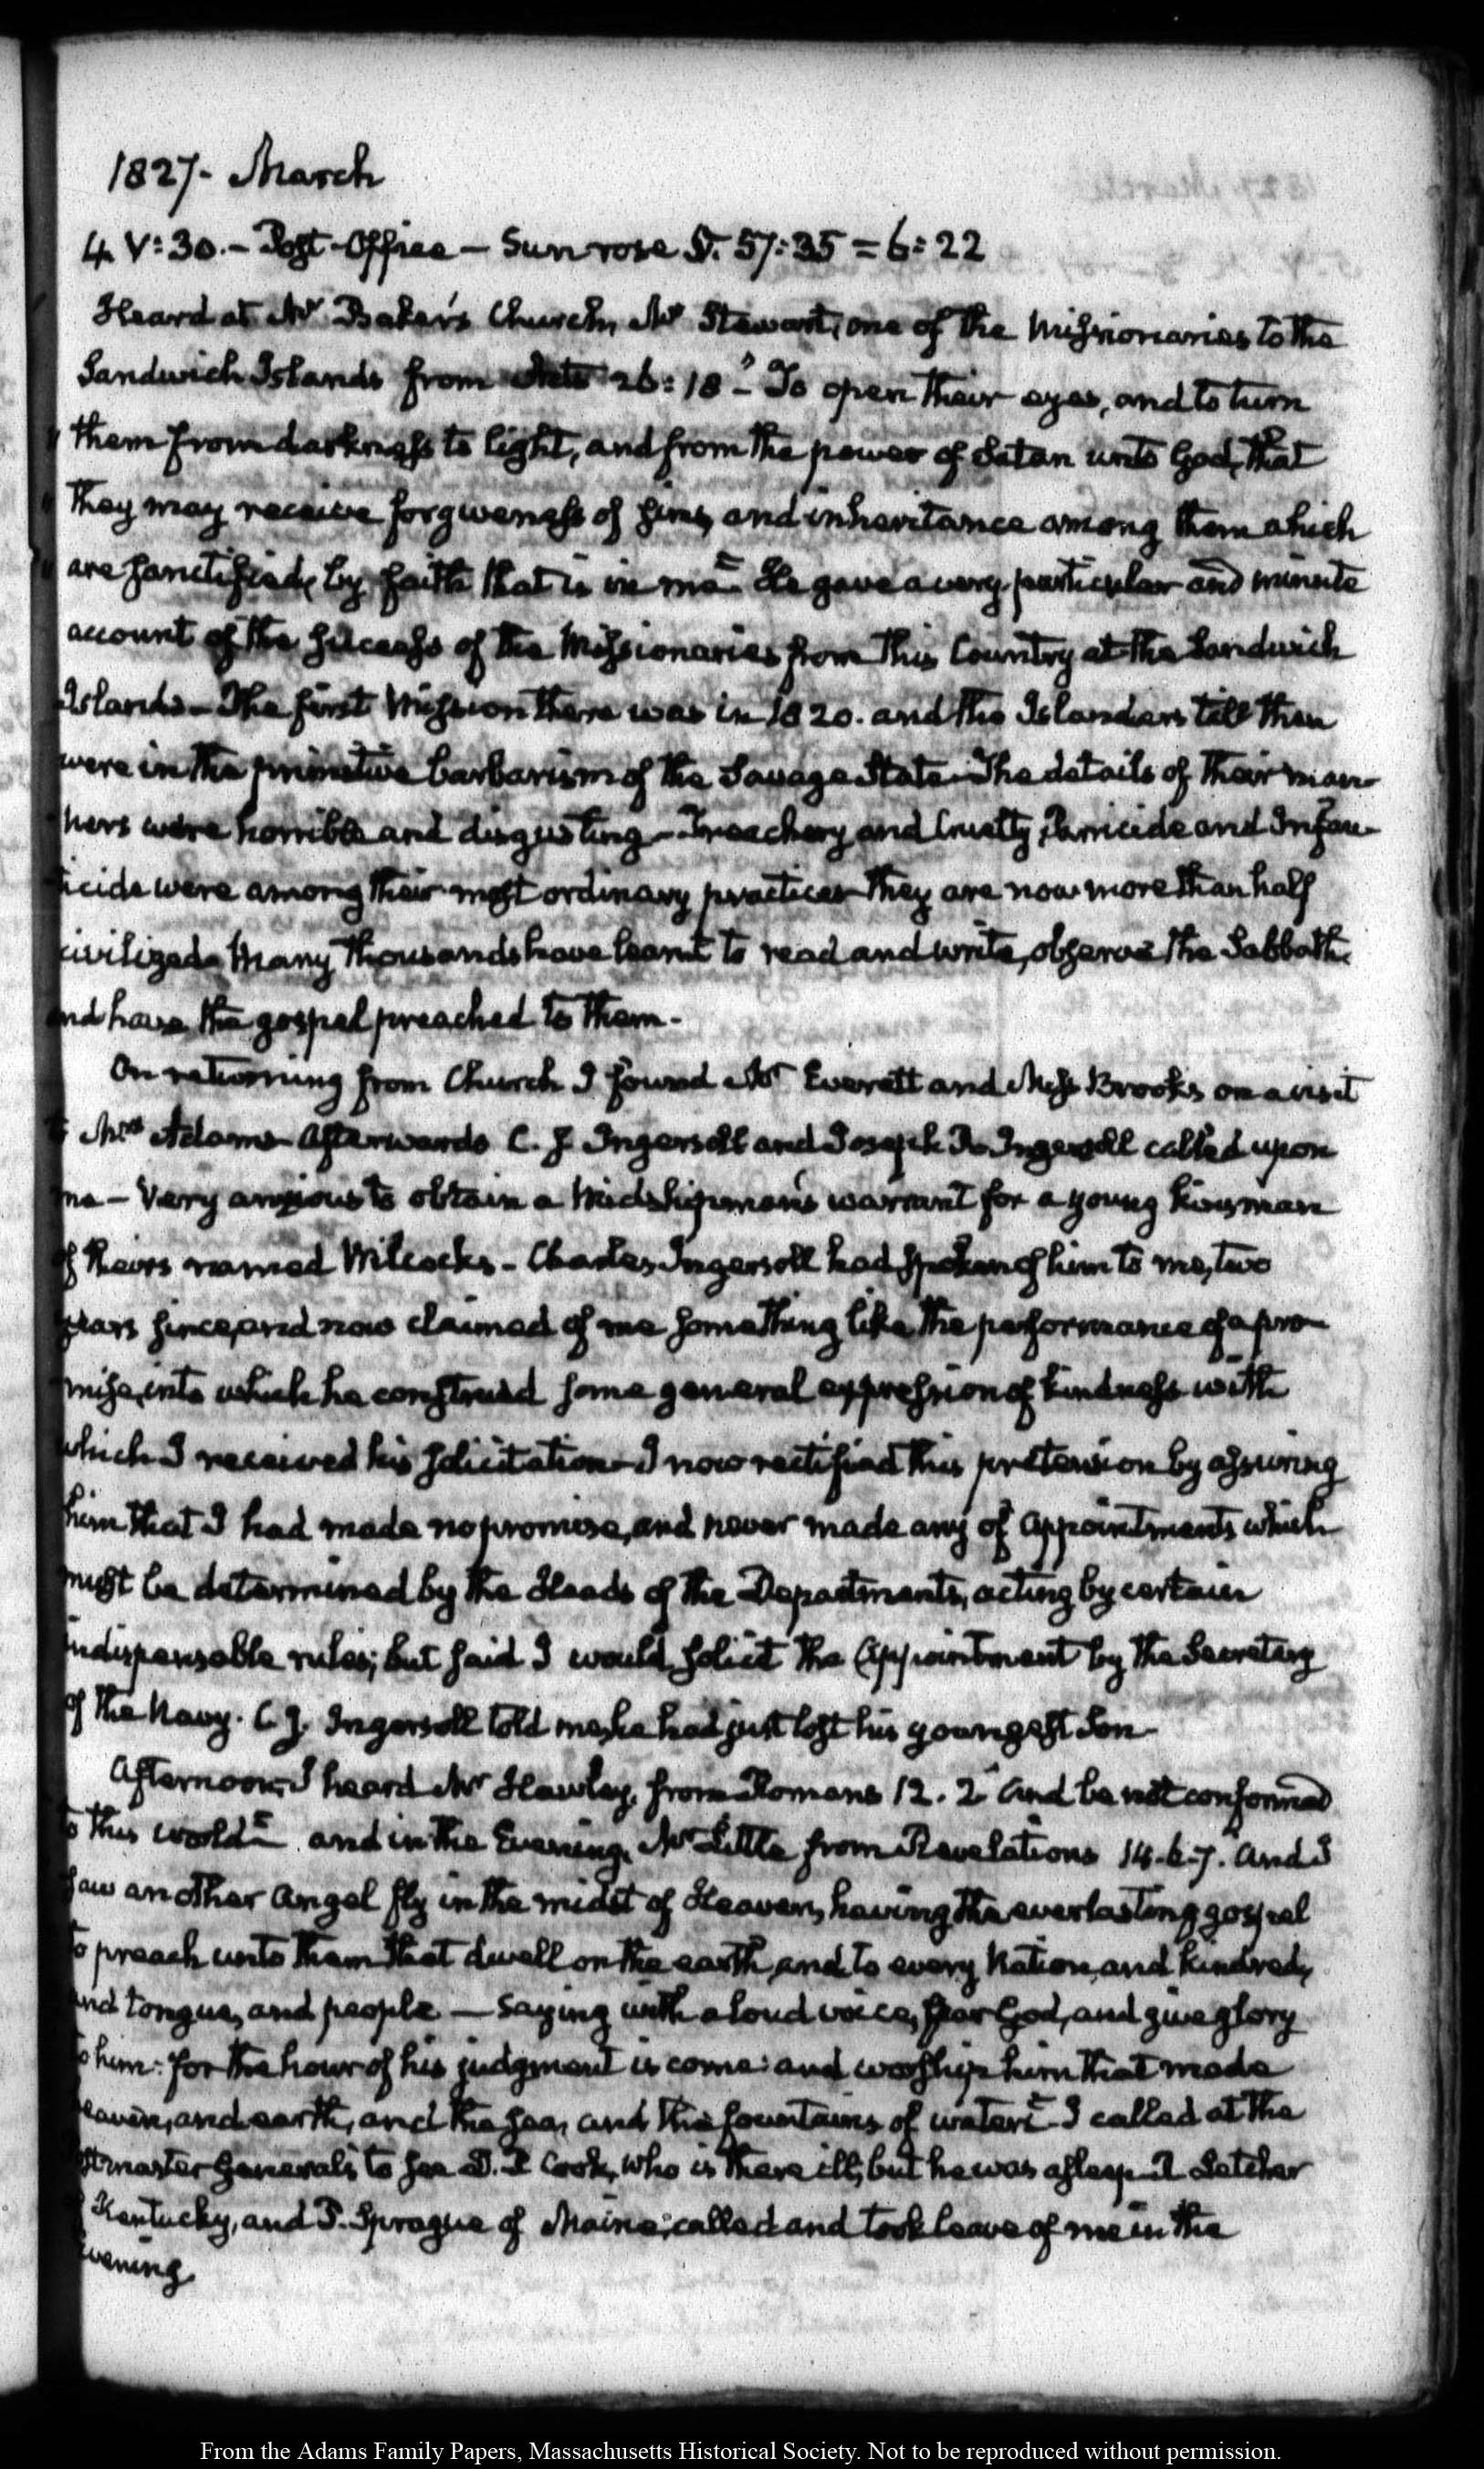 1827- March
4. V:30.- Post-Office - Sun rose 5. 57:35 = 6:22
Heard at Mr Baker's Church, Mr Stewart, one of the Missionaries to the
Sandwich Islands from Acts 26:18 "To open their eyes, and to turn
"them from darkness to light, and from the power of Satan unto God, that
"they may receive forgiveness of sins, and inheritance among them which
"are sanctified, by faith that is in me" He gave a very particular and minute
account of the success of the Missionaries from this Country at the Sandwich
Islands- The first Mission there was in 1820. and the Islanders till then
were in the primitive barbarism of the Savage State- The details of their man-
ners were horrible and disgusting- Treachery and Cruelty, Parricide and Infan-
ticide were among their most ordinary practices- They are now more than half
civilized- Many thousands have learnt to read and write, observe the Sabbath,
and have the gospel preached to them-
On returning from Church I found Mr Everett and Miss Brooks on a visit
to Mrs Adams- Afterwards C. J. Ingersoll and Joseph R. Ingersoll called upon
me- Very anxious to obtain a Midshipman's warrant for a young kinsman
of theirs named Wilcocks- Charles Ingersoll had spoken of him to me, two
years since, and now claimed of me something like the performance of a pro-
mise, into which he construed some general expression of kindness with
which I received his solicitation- I now rectified this pretension by assuring
him that I had made no promise, and never made any of Appointments which
must be determined by the Heads of the Departments, acting by certain
indispensable rules; but said I would solicit the Appointment by the Secretary
of the Navy. C. J. Ingersoll told me, he had just lost his youngest Son-
Afternoon, I heard Mr Hawley, from Romans 12. 2 "And be not conformed
to this world" and in the Evening, Mr Little from Revelations 14. 6. 7. "And I
saw another Angel fly in the midst of Heaven, having the everlasting gospel
to preach unto them that dwell on the earth, and to every Nation, and kindred,
and tongue, and people - Saying with a loud voice, fear God, and give glory
to him: for the hour of his judgment is come: and worship him that made
heaven, and earth, and the sea, and the fountains of waters" I called at the
Postmaster General's to see D. P. Cook, who is there ill; but he was asleep- R Letcher
of Kentucky, and P. Sprague of Maine, called and took leave of me in the
evening.
From the Adams Family Papers, Massachusetts Historical Society. Not to be reproduced without permission.